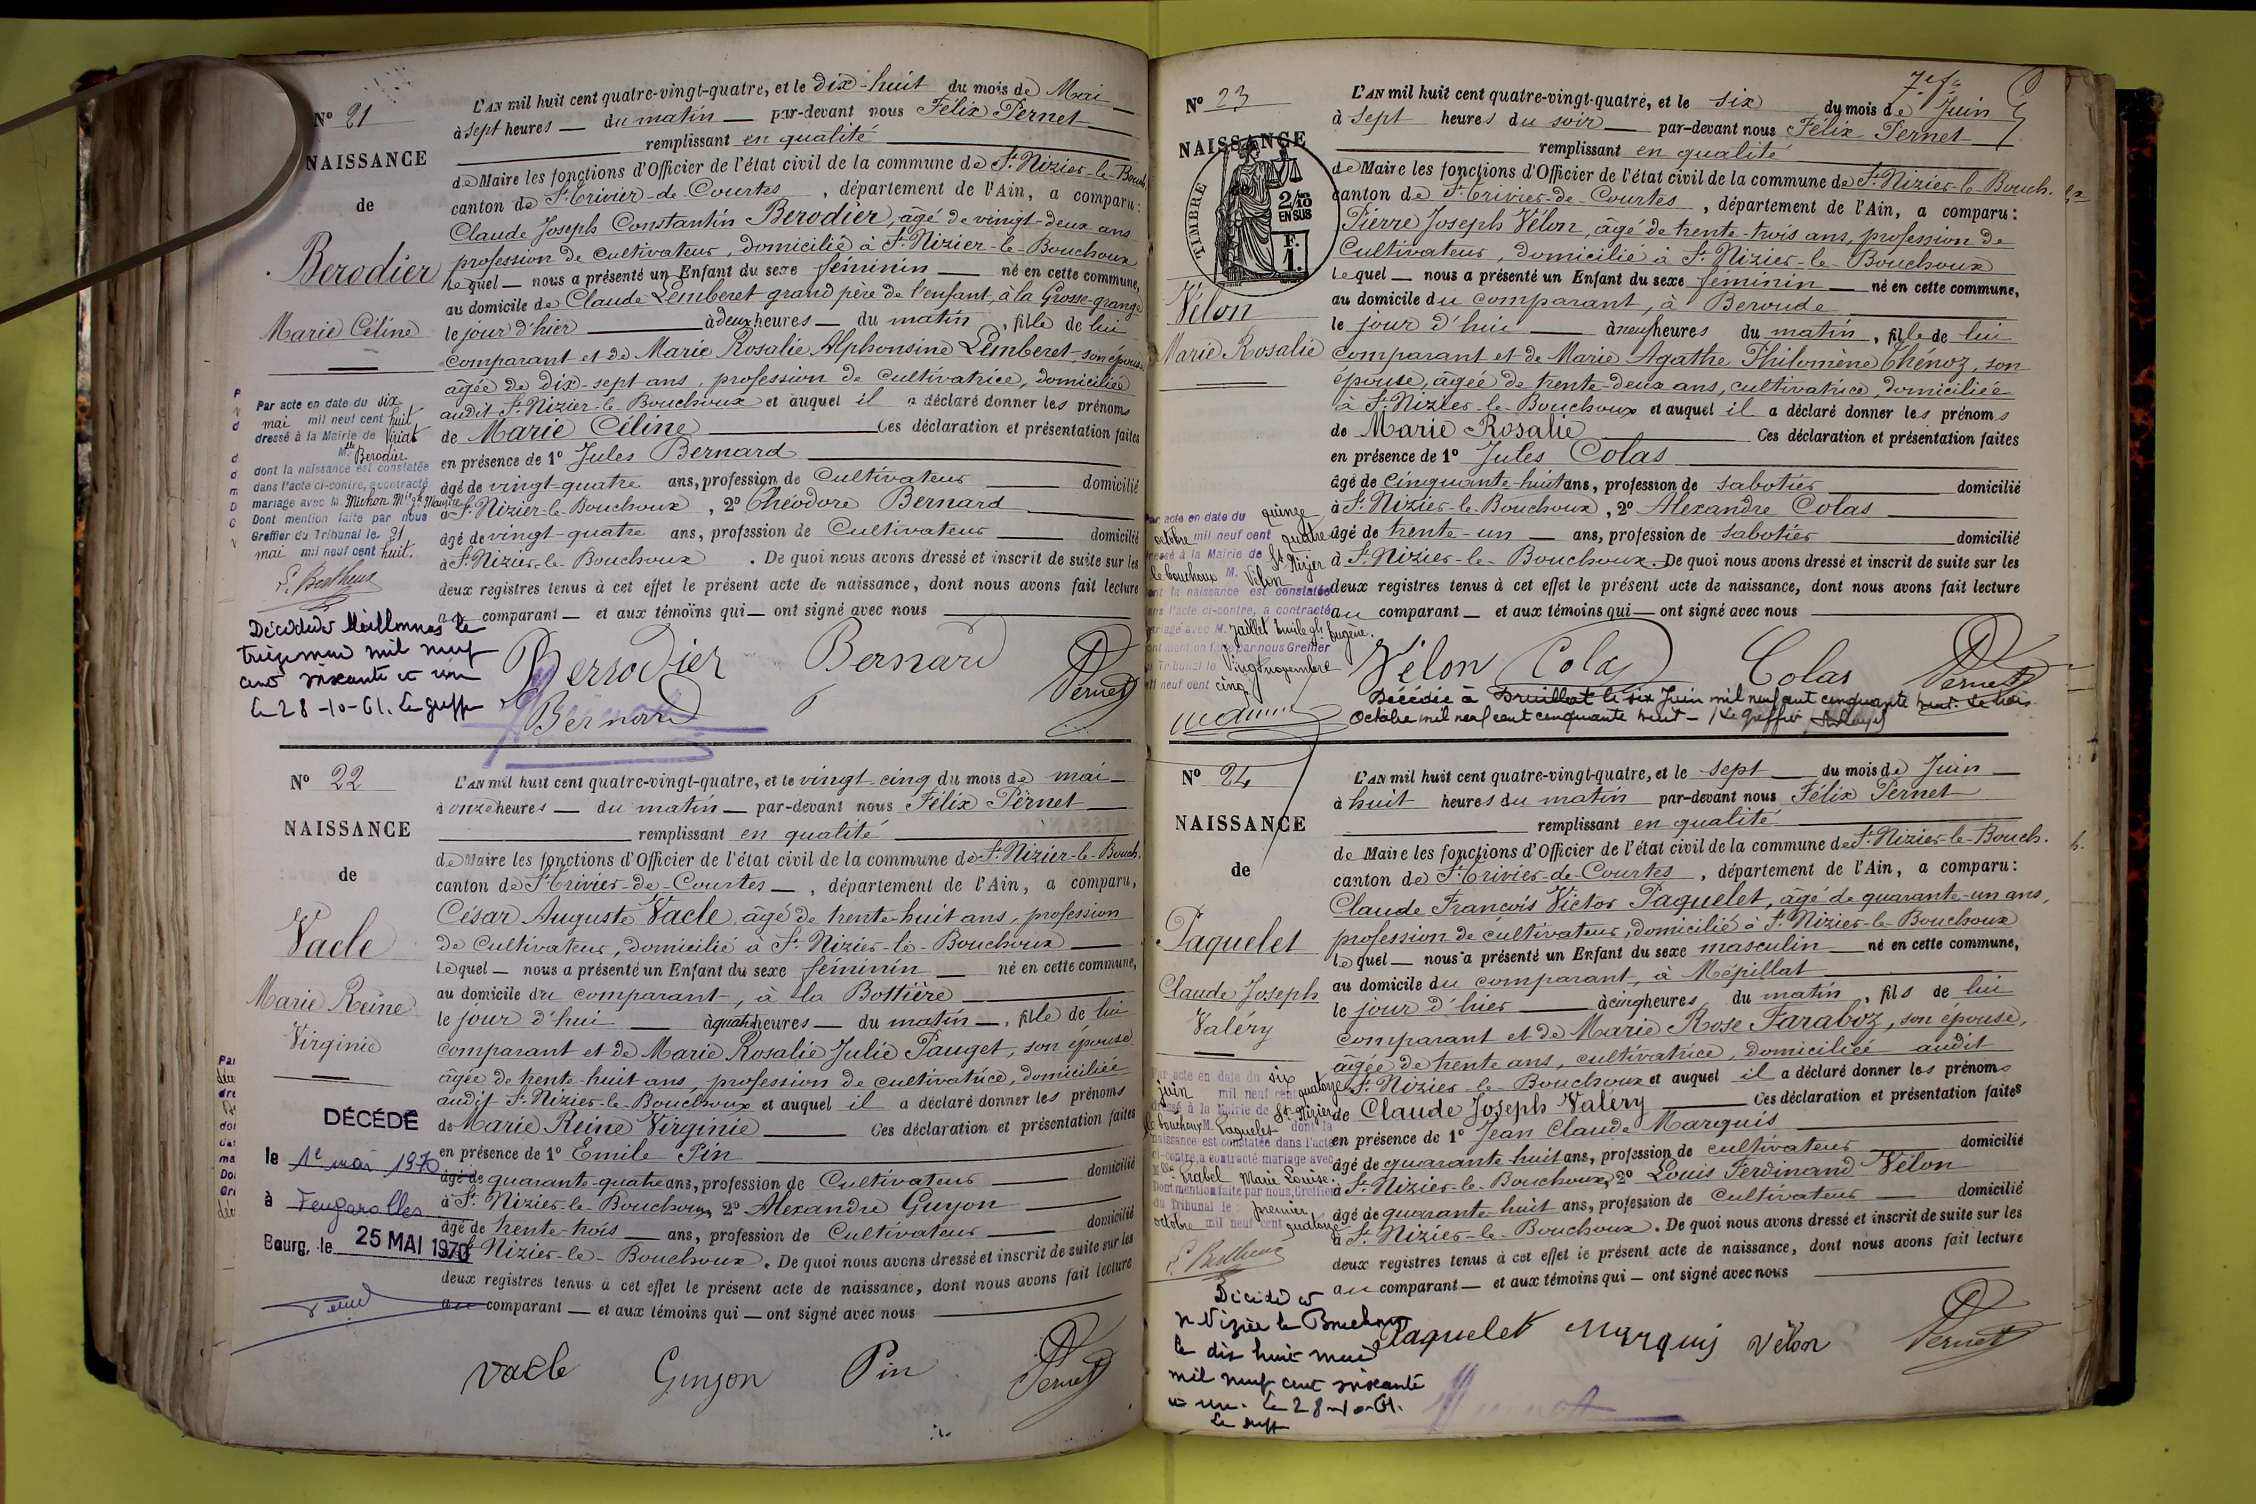 N° 21
NAISSANCE
de
Berodier
Marie Céline
L'AN mil huit cent quatre-vingt-quatre, et le dix-huit du mois de Mai
à sept heures du matin par-devant nous Félix Pernet
remplissant en qualité
de Maire les fonctions d'Officier de l'état civil de la commune de St Nizier-le-Bouch.
canton de St Trivier-de-Courtes, département de l'Ain, a comparu:
Claude Joseph Constantin Berodier, âgé de vingt-deux ans
profession de cultivateur, domicilié à St Nizier-le-Bouchoux
lequel nous a présenté un Enfant du sexe féminin né en cette commune,
au domicile de Claude Lemberet grand père de l'enfant, à la Grosse-grange
le jour d'hier à deux heures du matin, fille de lui
comparant et de Marie Rosalie Alphonsine Lemberet, son épouse
âgée de dix-sept ans, profession de cultivatrice, domiciliée
audit St Nizier-le-Bouchoux et auquel il a déclaré donner les prénoms
de Marie Céline Ces déclaration et présentation faites
en présence de 1° Jules Bernard
âgé de vingt-quatre ans, profession de Cultivateur domicilié
à St Nizier-le-Bouchoux, 2° Théodore Bernard
âgé de vingt-quatre ans, profession de Cultivateur domicilié
à St Nizier-le-Bouchoux. De quoi nous avons dressé et inscrit de suite sur les
deux registres tenus à cet effet le présent acte de naissance, dont nous avons fait lecture
au comparant et aux témoins qui ont signé avec nous
Berrodier Bernard Pernet
Bernard
Par acte en date du six
mai mil neuf cent huit
dressé à la Mairie de Viriat
Mlle Berodier
dont la naissance est constatée
dans l'acte ci-contre, a contracté
mariage avec M. Michon
Dont mention faite par nous
Greffier du Tribunal le 21
mai mil neuf cent huit.
Décédée à Meillonnas le
treize mai mil neuf
cent soixante et un
Le 28-10-61. Le greff
N° 22
NAISSANCE
de
Vacle
Marie Reine
Virginie
L'AN mil huit cent quatre-vingt-quatre, et le vingt-cinq du mois de mai
à onze heures du matin par-devant nous Félix Pernet
remplissant en qualité
de Maire les fonctions d'Officier de l'état civil de la commune de St Nizier-le-Bouch.
canton de St Trivier-de-Courtes, département de l'Ain, a comparu,
César Auguste Vacle, âgé de trente-huit ans, profession
de Cultivateur, domicilié à St Nizier-le-Bouchoux
lequel nous a présenté un Enfant du sexe féminin né en cette commune,
au domicile du comparant, à la Bottière
le jour d'hui à quatre heures du matin, fille de lui
comparant et de Marie Rosalie Julie Pauget, son épouse
âgée de trente-huit ans, profession de cultivatrice, domiciliée
audit St Nizier-le-Bouchoux et auquel il a déclaré donner les prénoms
de Marie Reine Virginie Ces déclaration et présentation faites
en présence de 1° Emile Pin
âgé de quarante-quatre ans, profession de Cultivateur domicilié
à St Nizier-le-Bouchoux, 2° Alexandre Guyon
âgé de trente-trois ans, profession de Cultivateur domicilié
à St Nizier-le-Bouchoux. De quoi nous avons dressé et inscrit de suite sur les
deux registres tenus à cet effet le présent acte de naissance, dont nous avons fait lecture
au comparant et aux témoins qui ont signé avec nous
vacle Guyon Pin Pernet
DÉCÉDÉ
le 1e mai 1970
à Feugarolles
Bourg, le 25 MAI 1970
N° 23
NAISSANCE
TIMBRE
2/10
EN SUS
F.
1.
Vélon
Marie Rosalie
L'AN mil huit cent quatre-vingt-quatre, et le six du mois de Juin
à sept heures du soir par-devant nous Félix Pernet
remplissant en qualité
de Maire les fonctions d'Officier de l'état civil de la commune de St Nizier-le-Bouch.
canton de St Trivier-de-Courtes, département de l'Ain, a comparu:
Pierre Joseph Vélon, âgé de trente-trois ans, profession de
Cultivateur, domicilié à St Nizier-le-Bouchoux
lequel nous a présenté un Enfant du sexe féminin né en cette commune,
au domicile du comparant, à Beroude
le jour d'hui à neuf heures du matin, fille de lui
comparant et de Marie Agathe Philomène Thénoz, son
épouse, âgée de trente-deux ans, cultivatrice, domiciliée
à St Nizier-le-Bouchoux et auquel il a déclaré donner les prénoms
de Marie Rosalie Ces déclaration et présentation faites
en présence de 1° Jules Colas
âgé de Cinquante-huit ans, profession de sabotier domicilié
à St Nizier-le-Bouchoux, 2° Alexandre Colas
âgé de trente-un ans, profession de sabotier domicilié
à St Nizier-le-Bouchoux. De quoi nous avons dressé et inscrit de suite sur les
deux registres tenus à cet effet le présent acte de naissance, dont nous avons fait lecture
au comparant et aux témoins qui ont signé avec nous
Vélon Colas Colas Pernet
Décédée à Druillat le six Juin mil neuf cent cinquante huit. Le trois
Octobre mil neuf cent cinquante huit - Le Greffier
Par acte en date du quinze
octobre mil neuf cent quatre
dressé à la Mairie de St Nizier
le bouchoux M. Vélon
dont la naissance est constatée
dans l'acte ci-contre, a contracté
mariage avec M. Jaillet Emile Eugène.
Dont mention faite par nous Greffier
du Tribunal le Vingt novembre
mil neuf cent cinq
N° 24
NAISSANCE
de
Paquelet
Claude Joseph
Valéry
L'AN mil huit cent quatre-vingt-quatre, et le sept du mois de Juin
à huit heures du matin par-devant nous Félix Pernet
remplissant en qualité
de Maire les fonctions d'Officier de l'état civil de la commune de St Nizier-le-Bouch.
canton de St Trivier-de-Courtes, département de l'Ain, a comparu:
Claude François Victor Paquelet, âgé de quarante-un ans,
profession de cultivateur, domicilié à St Nizier-le-Bouchoux
lequel nous a présenté un Enfant du sexe masculin né en cette commune,
au domicile du comparant, à Mépillat
le jour d'hier à cinq heures du matin, fils de lui
comparant et de Marie Rose Faraboz, son épouse,
âgée de trente ans, cultivatrice, domiciliée audit
St Nizier-le-Bouchoux et auquel il a déclaré donner les prénoms
de Claude Joseph Valéry Ces déclaration et présentation faites
en présence de 1° Jean Claude Marquis
âgé de quarante-huit ans, profession de cultivateur domicilié
à St Nizier-le-Bouchoux, 2° Louis Ferdinand Vélon
âgé de quarante-huit ans, profession de Cultivateur domicilié
à St Nizier-le-Bouchoux. De quoi nous avons dressé et inscrit de suite sur les
deux registres tenus à cet effet le présent acte de naissance, dont nous avons fait lecture
au comparant et aux témoins qui ont signé avec nous
Paquelet Marquis Vélon Pernet
Par acte en date du six
juin mil neuf cent quatorze
dressé à la Mairie de St Nizier
le bouchoux M. Paquelet dont la
naissance est constatée dans l'acte
ci-contre, a contracté mariage avec
Mlle Marie Louise.
Dont mention faite par nous, Greffier
du Tribunal le premier
octobre mil neuf cent quatorze
Décidé à
St Nizier le Bouchoux
le dix huit mai
mil neuf cent soixante
et un. Le 28-10-61.
Le greff